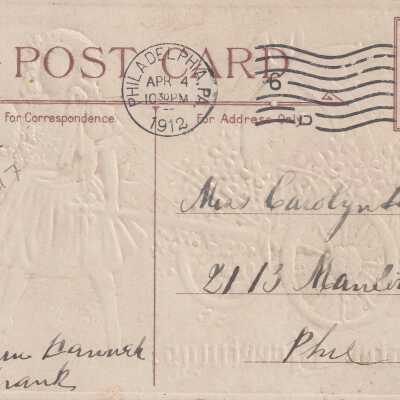 POST CARD
PHILADELPHIA, PA.
APR 4
10 30 PM
1912
6
For Correspondence.
For Address Only.
Miss Carolyn
2113
Phil
Frank